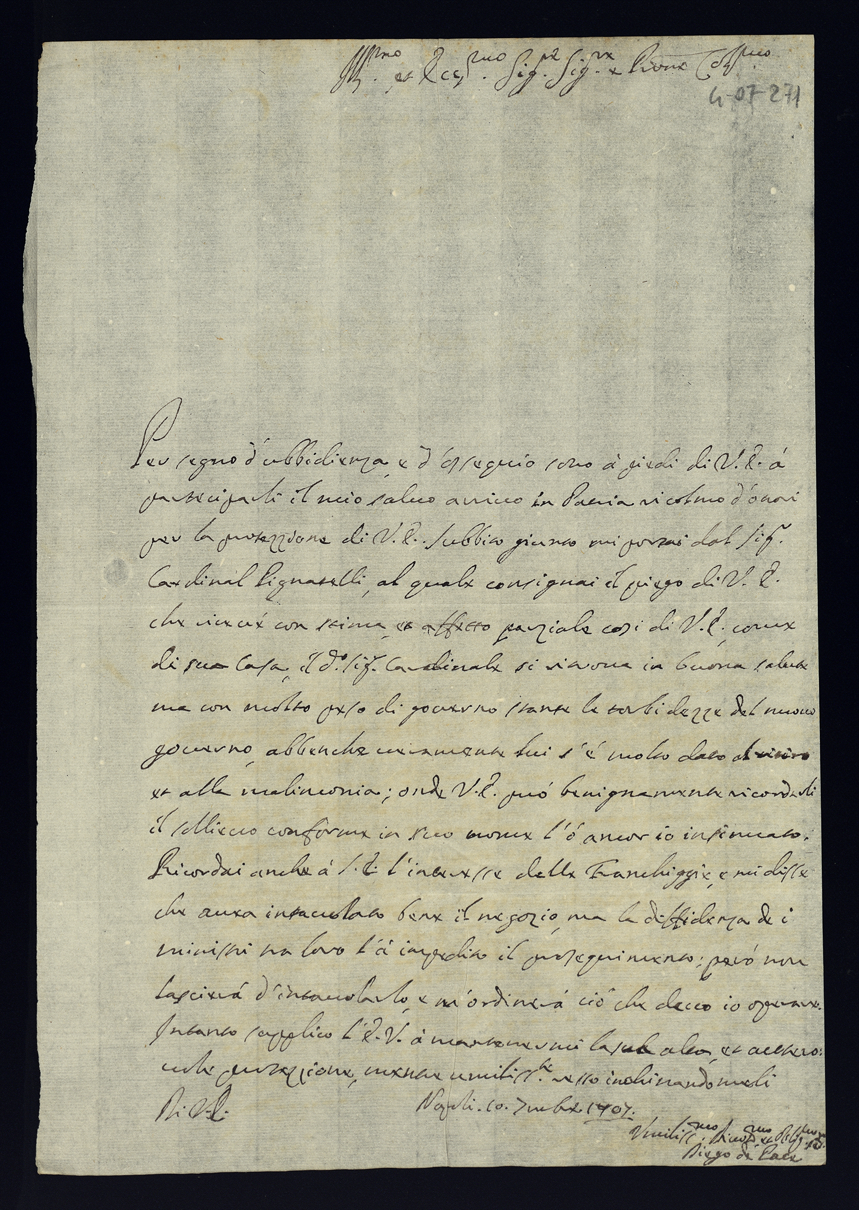 Ill.mo et Ecc.mo Sig.re Sig.re e P̄rone Col.mo
4-07-271
Per segno d'ubbidienza, e d'ossequio sono à piedi di V.E. à
parteciparli il mio salvo arrivo in Patria ricolmo d'onori
per la protezzione di V.E. Subbito giunto mi portai dal Sig.r
Cardinal Pignatelli, al quale consignai il piego di V.E.
che ricevé con stima, et affetto parziale così di V.E., come
di sua Casa, il d.o Sig.r Cardinale si ritrova in buona salute
ma con molto peso di governo stante le torbidezze del nuovo
governo, abbenche veramente lui s'è molto dato al ritiro
et alla malinconia; onde V.E. può benignamente ricordarli
il sollievo conforme in suo nome l'ò ancor io insinuato.
Ricordai anche à S.E. l'interesse delle Franchiggie, e mi disse
che avea intavolato bene il negozio, ma la diffidenza de i
ministri tra loro l'à impedito il proseguimento; però non
lascierà d'intavolarlo, e m'ordinerà ciò che devo io operare.
Intanto supplico l'E.V. à mantenermi la sua alta, et autero:
vole protezzione, mentre umiliss.te resto inchinandomeli
Di V.E.
Napoli 10. 7mbre 1707.
Umiliss.mo Divot.mo et Oblig.mo
Diego de Pace